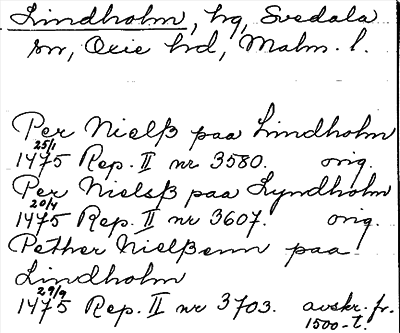 Lindholm, hg, Svedala
sn, Oxie hd, Malm. l.
Per Nielß paa Lindholm
25/1
1475 Rep. II nr 3580. orig.
Per Nielsß paa Lyndholm
20/4
1475 Rep. II nr 3607. orig.
Pether Nielßenn paa
Lindholm
29/9
1475 Rep. II nr 3703. avskr. fr.
1500-t.